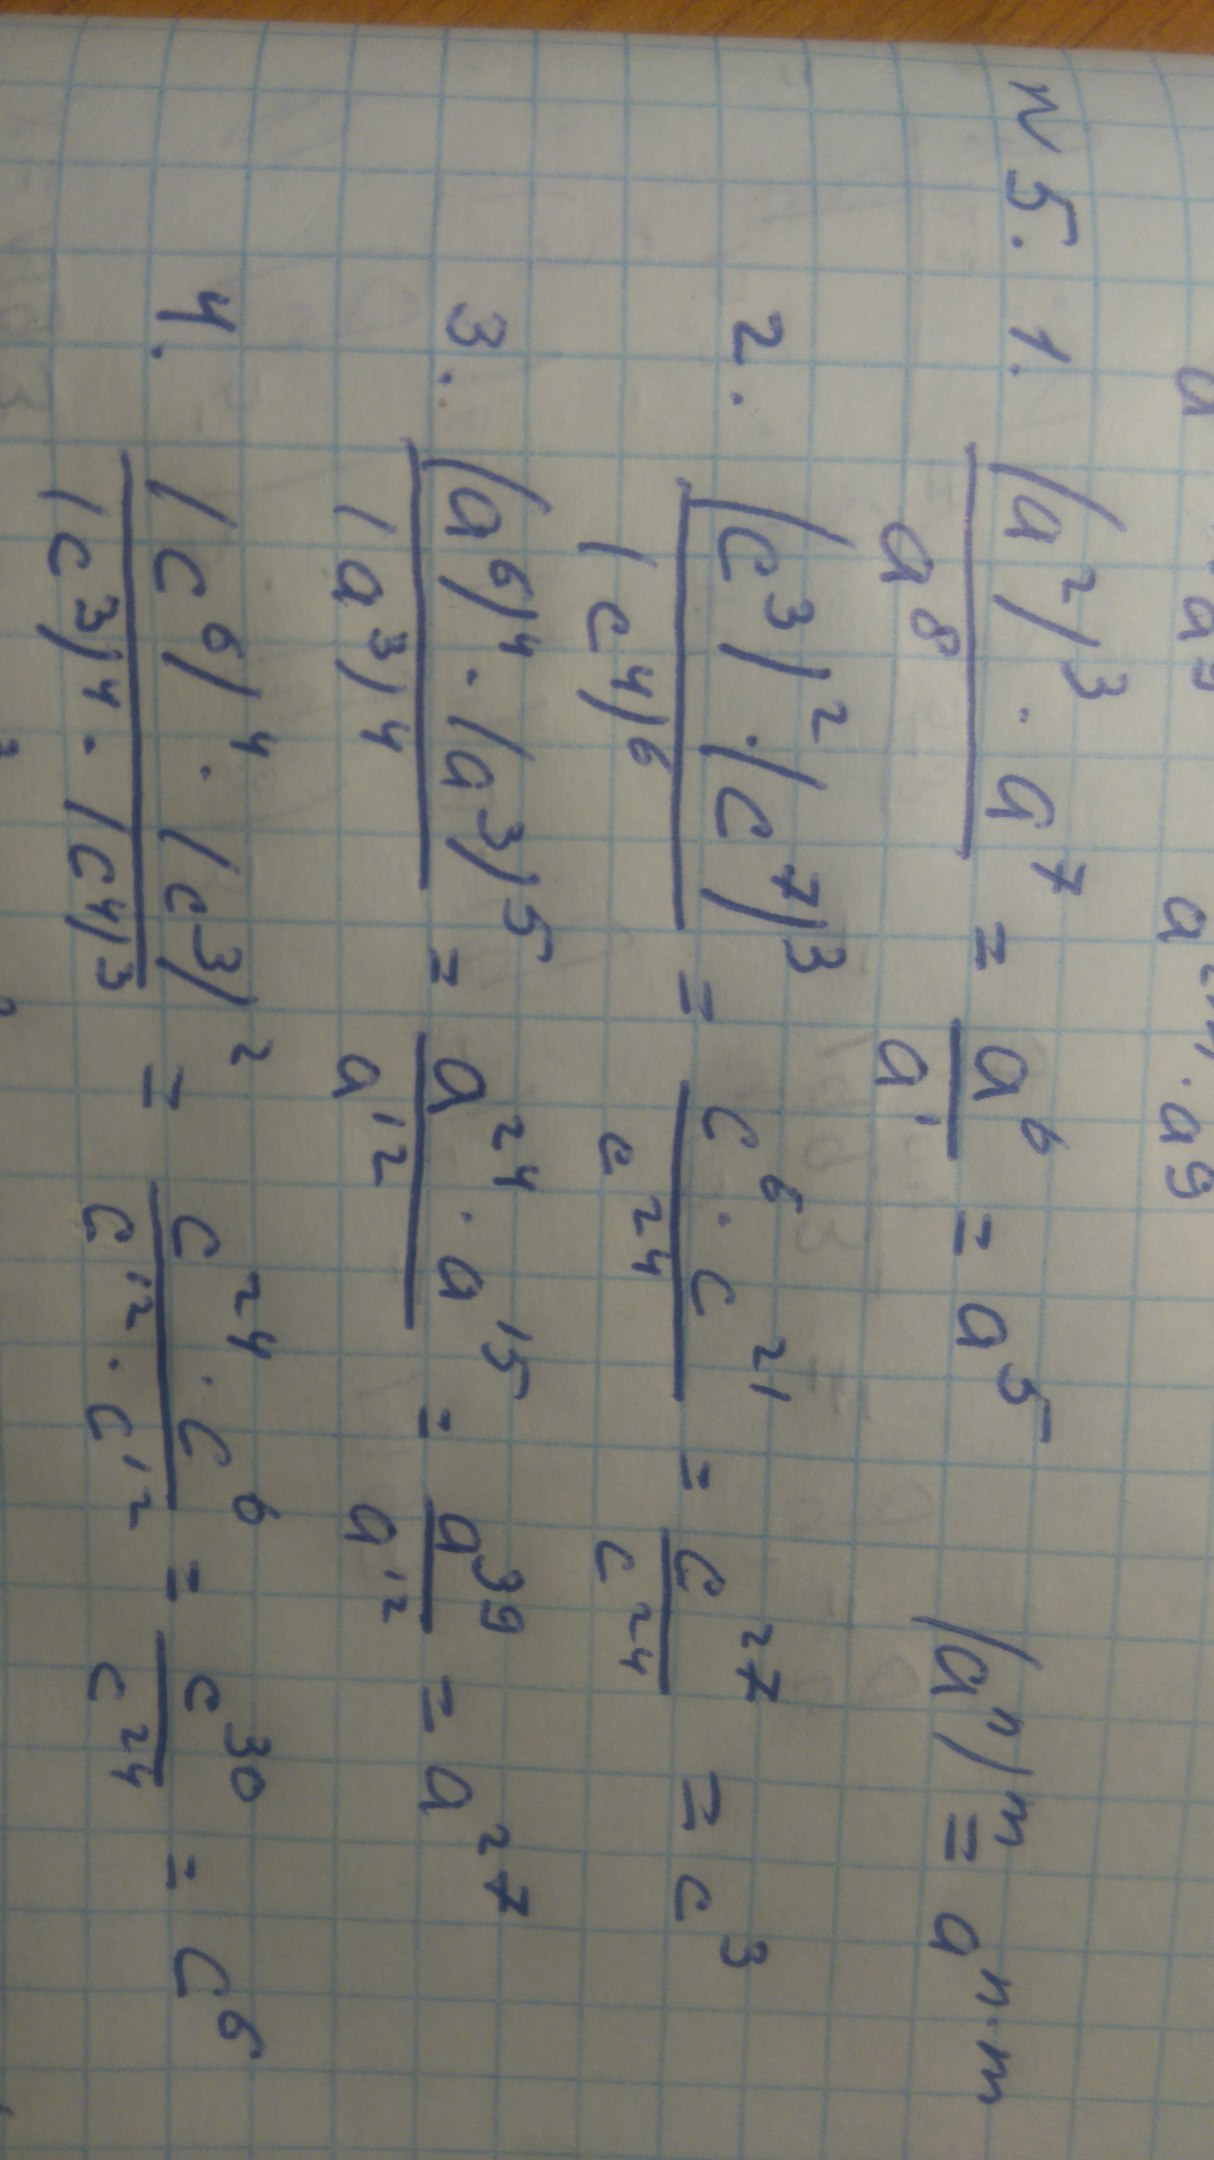 N 5. 1. (a²)³ · a⁷ / a⁸ = a⁶ / a¹ = a⁵ (aⁿ)ᵐ = aⁿ·ᵐ
2. (c³)² · (c⁷)³ / (c⁴)⁶ = c⁶ · c²¹ / c²⁴ = c²⁷ / c²⁴ = c³
3. (a⁶)⁴ · (a³)⁵ / (a³)⁴ = a²⁴ · a¹⁵ / a¹² = a³⁹ / a¹² = a²⁷
4. (c⁶)⁴ · (c³)² / (c³)⁴ · (c⁴)³ = c²⁴ · c⁶ / c¹² · c¹² = c³⁰ / c²⁴ = c⁶